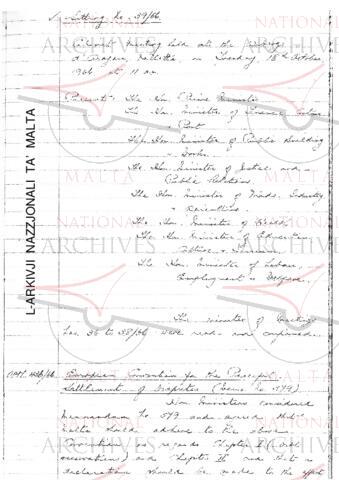 Sitting No: 39/66.
Cabinet meeting held at the Auberge
d'Aragon, Valletta, on Tuesday, 18th October
1966 at 11 a.m.
Present: The Hon. Prime Minister
The Hon. Minister of Finance, Customs
Port
The Hon. Minister of Public Building
& Works.
The Hon. Minister of Justice and
Public Relations
The Hon. Minister of Trade, Industry
& Agriculture.
The Hon. Minister of Health
The Hon. Minister of Education,
Culture & Tourism
The Hon. Minister of Labour,
Employment & Welfare.
The minutes of meetings
Nos 36 to 38/66 were read and confirmed.
European Convention for the Peaceful
Settlement of Disputes (Memo No 579)
Hon. Ministers considered
Memorandum No 579 and agreed that
Malta should adhere to the above
Convention as regards Chapter I
and Chapter II and that a
declaration should be made to the effect
L-ARKIVJI NAZZJONALI TA' MALTA
NATIONAL
ARCHIVES
MALTA